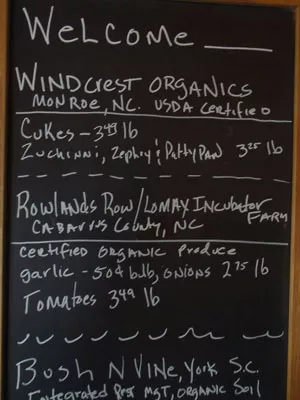 Welcome
Windcrest Organics
Monroe, NC. USDA Certified
Cukes - 3.49 lb
Zuchinni, Zephyr & Patty Pan 3.25 lb
Rowlands Row/Lomax Incubator Farm
Cabarrus County, NC
Certified Organic Produce
garlic - 50¢ bulb, onions 2.75 lb
Tomatoes 3.49 lb
Bush N Vine, York S.C.
Integrated Pest Mgt, Organic Soil